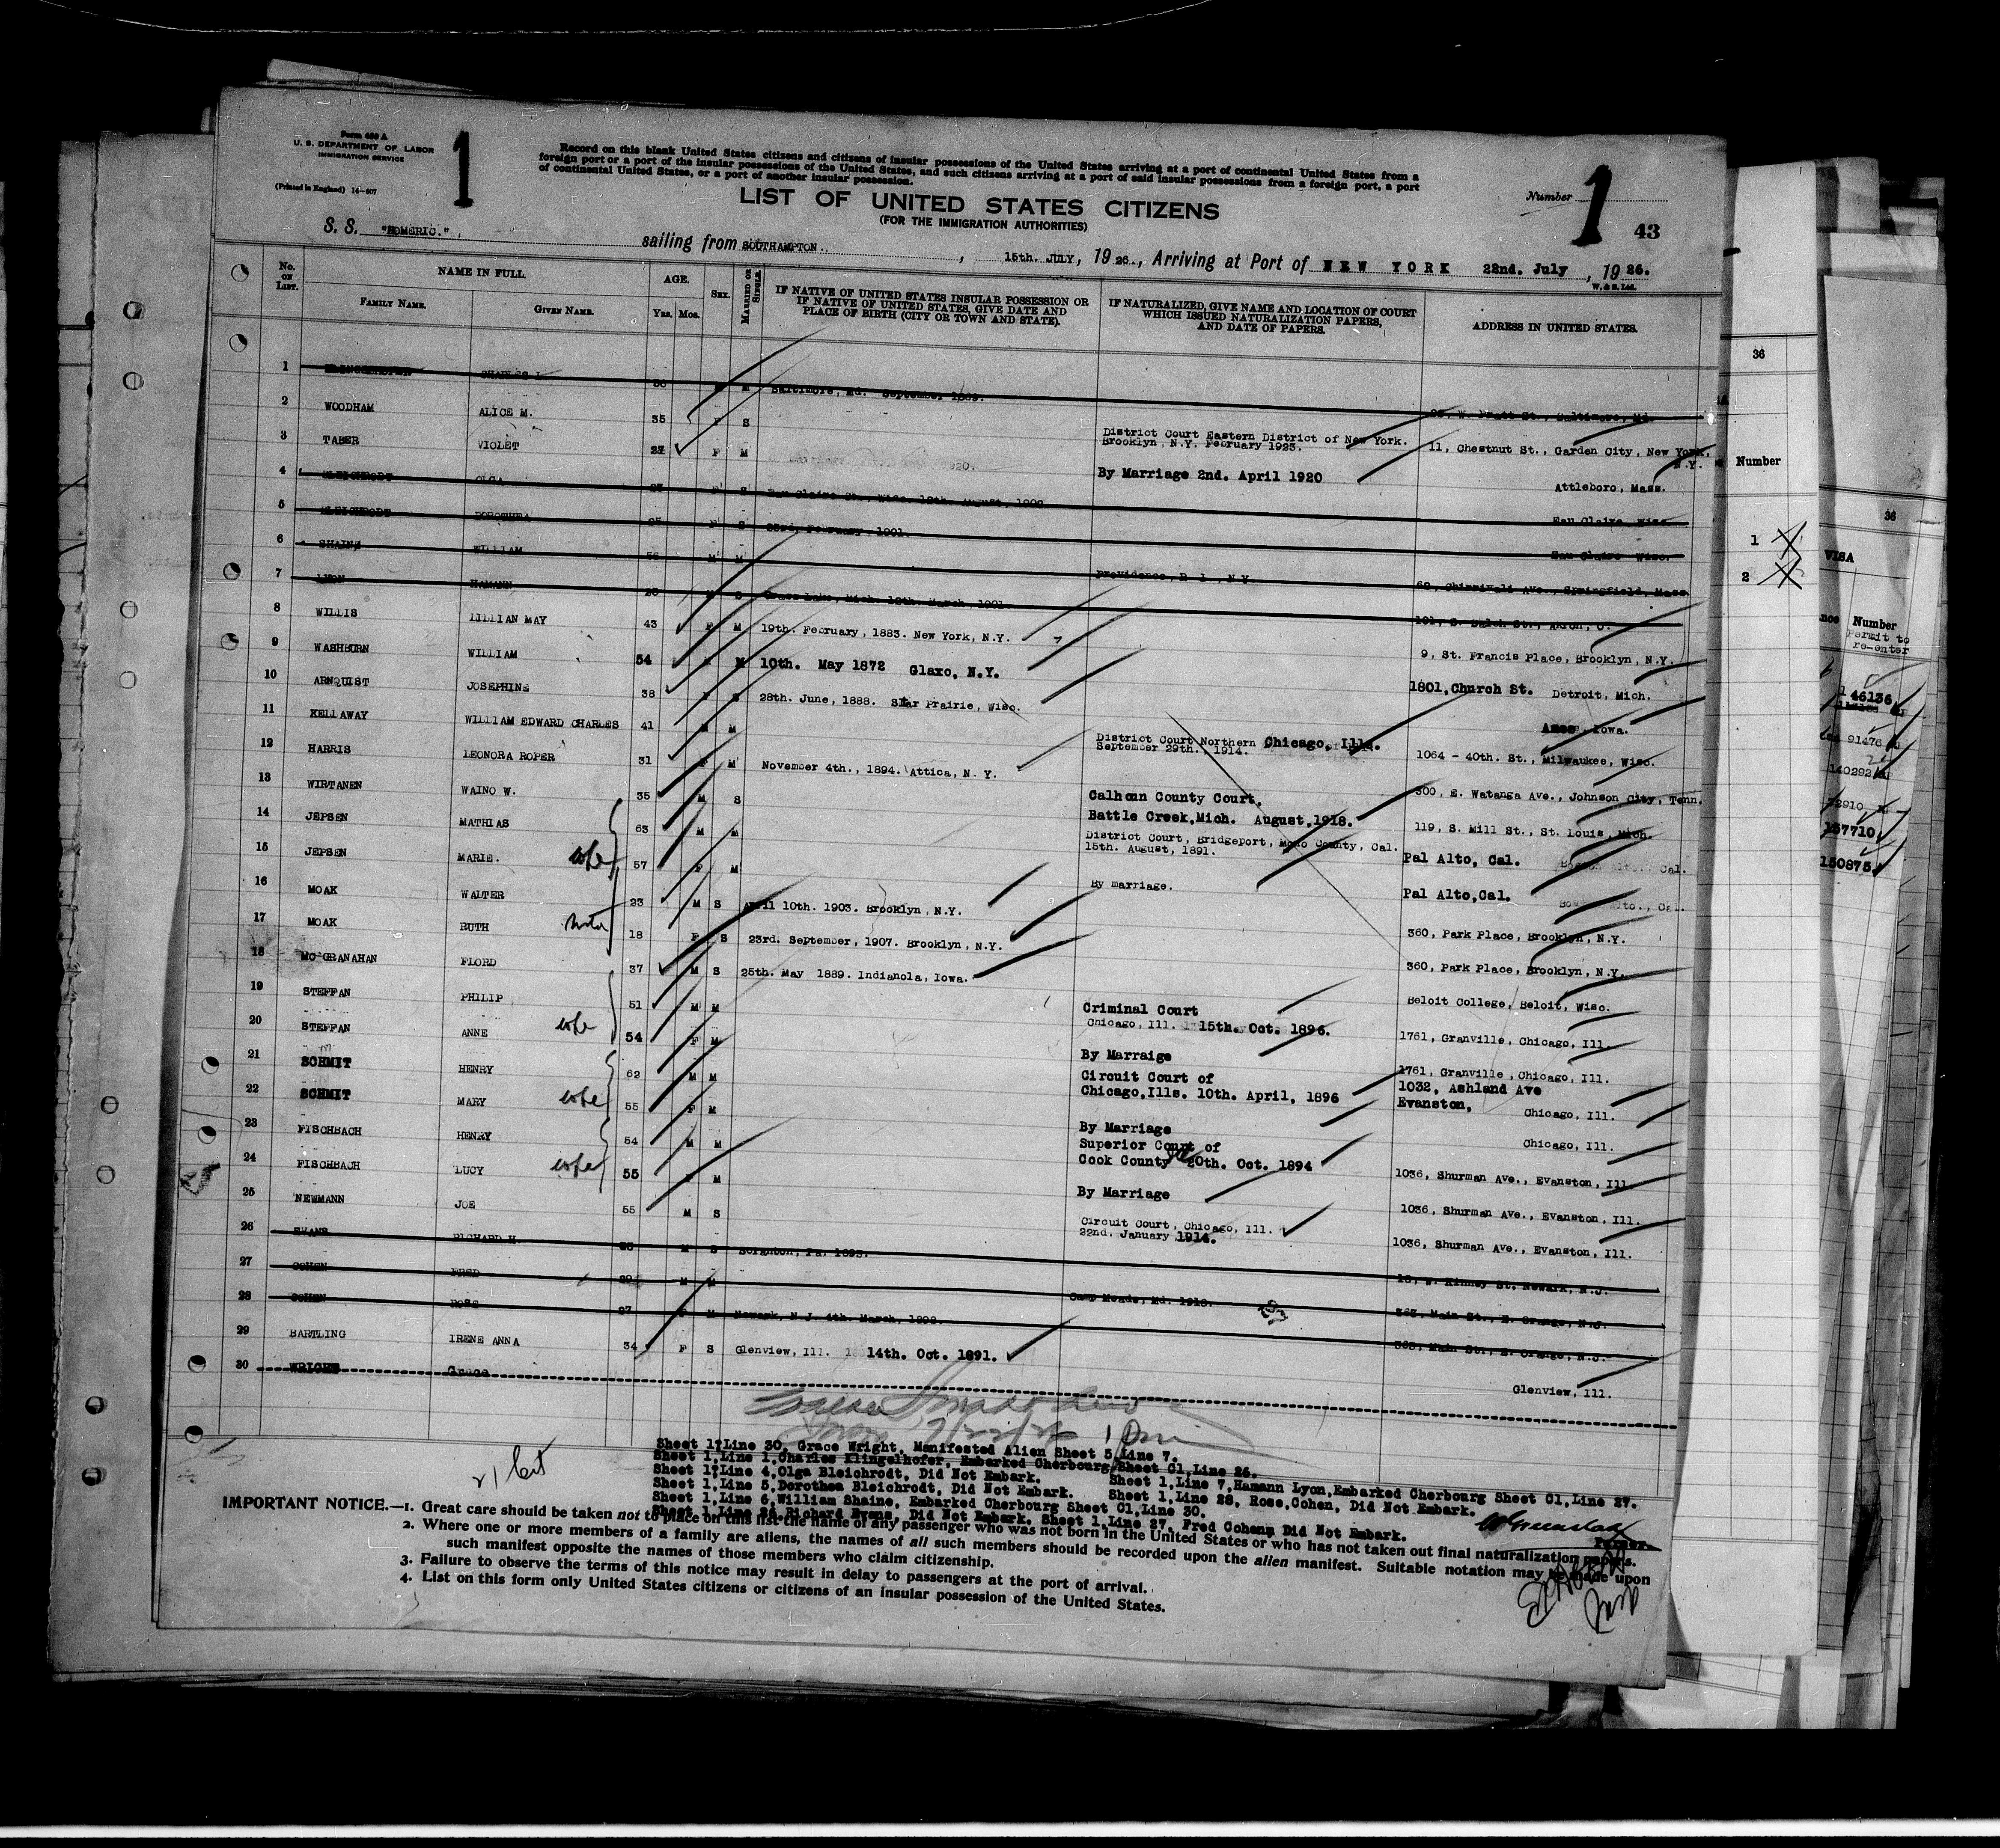 Form 630 A
U. S. DEPARTMENT OF LABOR
IMMIGRATION SERVICE
(Printed in England) 14—607
1
Record on this blank United States citizens and citizens of insular possessions of the United States arriving at a port of continental United States from a
foreign port or a port of the insular possessions of the United States, and such citizens arriving at a port of said insular possessions from a foreign port, a port
of continental United States, or a port of another insular possession.
LIST OF UNITED STATES CITIZENS
(FOR THE IMMIGRATION AUTHORITIES)
Number 1 43
S. S. "HOMERIC." sailing from SOUTHAMPTON. , 15th. JULY, 1926., Arriving at Port of NEW YORK 22nd. July , 1926.
W. & S. Ltd.
No. on List. NAME IN FULL. AGE. Sex. Married or Single. IF NATIVE OF UNITED STATES INSULAR POSSESSION OR IF NATIVE OF UNITED STATES, GIVE DATE AND PLACE OF BIRTH (CITY OR TOWN AND STATE). IF NATURALIZED, GIVE NAME AND LOCATION OF COURT WHICH ISSUED NATURALIZATION PAPERS, AND DATE OF PAPERS. ADDRESS IN UNITED STATES.
Family Name. Given Name. Yrs. Mos.
1 CHARLES M Baltimore, Md. September 1889. W. Pratt St., Baltimore, Md.
2 WOODHAM ALICE M. 35 F S District Court Eastern District of New York. Brooklyn, N.Y. February 1923. 11, Chestnut St., Garden City, New York, N.Y.
3 TABER VIOLET 27 F M By Marriage 2nd. April 1920 Attleboro, Mass.
4 BLEICHRODT OLGA F S Eau Claire Co., Wisc. 18th. August, Eau Claire, Wisc.
5 BLEICHRODT DOROTHEA 25 F S 23rd. February, 1901. Eau Claire Wisc.
6 SHAINE WILLIAM 56 M M Providence, R. I., N.Y. Ave., Springfield, Mass.
7 LYON HAMANN M S Grass Lake, Mich. 12th. March, 1901. 191, S. Balch St., Akron, O.
8 WILLIS LILLIAN MAY 43 F M 19th. February, 1883. New York, N.Y. 9, St. Francis Place, Brooklyn, N.Y.
9 WASHBURN WILLIAM 54 M 10th. May 1872 Glaxo, N.Y. 1801, Church St. Detroit, Mich.
10 ARNQUIST JOSEPHINE 38 F S 28th. June, 1888. Star Prairie, Wisc. Ames, Iowa.
11 KELLAWAY WILLIAM EDWARD CHARLES 41 M M District Court Northern Chicago, Ills. September 29th., 1914. 1064 - 40th. St., Milwaukee, Wisc.
12 HARRIS LEONORA ROPER 31 F M November 4th., 1894. Attica, N. Y. 300, E. Watanga Ave., Johnson City, Tenn.
13 WIRTANEN WAINO W. 35 M S Calhoun County Court, Battle Creek, Mich. August, 1918. 119, S. Mill St., St. Louis, Mich.
14 JEPSEN MATHIAS 63 M M District Court, Bridgeport, Mono County, Cal. 15th. August, 1891. Pal Alto, Cal.
15 JEPSEN MARIE. wife 57 F M By marriage. Pal Alto, Cal.
16 MOAK WALTER 23 M S April 10th. 1903. Brooklyn, N.Y. 360, Park Place, Brooklyn, N.Y.
17 MOAK RUTH sister 18 F S 23rd. September, 1907. Brooklyn, N.Y. 360, Park Place, Brooklyn, N.Y.
18 MC GRANAHAN FLORD 37 M S 25th. May 1889. Indianola, Iowa. Beloit College, Beloit, Wisc.
19 STEFFAN PHILIP 51 M M Criminal Court Chicago, Ill. 15th. Oct. 1896. 1761, Granville, Chicago, Ill.
20 STEFFAN ANNE wife 54 F M By Marraige 1761, Granville, Chicago, Ill.
21 SCHMIT HENRY 62 M M Circuit Court of Chicago, Ills. 10th. April, 1896 1032, Ashland Ave Evanston, Chicago, Ill.
22 SCHMIT MARY wife 55 F M By Marriage Chicago, Ill.
23 FISCHBACH HENRY 54 M M Superior Court of Cook County 20th. Oct. 1894 1036, Shurman Ave., Evanston, Ill.
24 FISCHBACH LUCY wife 55 F M By Marriage 1036, Shurman Ave., Evanston, Ill.
25 NEWMANN JOE 55 M S Circuit Court, Chicago, Ill. 22nd. January 1914. 1036, Shurman Ave., Evanston, Ill.
26 EVANS RICHARD H. M S Scranton, Pa. 1893. Kinney St. Newark, N.J.
27 COHEN FRED M M Camp Meade, Md. 1918. 363, Main St., E. Orange, N.J.
28 COHEN ROSE 27 F M Newark, N.J. 4th. March, 363, Main St., E. Orange, N.J.
29 BARTLING IRENE ANNA 34 F S Glenview, Ill. 14th. Oct. 1891. Glenview, Ill.
30 WRIGHT Grace
7/22/26
Sheet 1, Line 30, Grace Wright, Manifested Alien Sheet 5, Line 7.
Sheet 1, Line 1, Charles Klingelhofer, Embarked Cherbourg Sheet C1, Line 26.
Sheet 1, Line 4, Olga Bleichrodt, Did Not Embark. Sheet 1, Line 7, Hamann Lyon, Embarked Cherbourg Sheet C1, Line 27.
Sheet 1, Line 5, Dorothea Bleichrodt, Did Not Embark. Sheet 1, Line 28, Rose, Cohen, Did Not Embark.
Sheet 1, Line 6, William Shaine, Embarked Cherbourg Sheet C1, Line 30.
Sheet 1, Line 26, Richard Evans, Did Not Embark. Sheet 1, Line 27, Fred Cohen, Did Not Embark.
IMPORTANT NOTICE.—1. Great care should be taken not to place on this list the name of any passenger who was not born in the United States or who has not taken out final naturalization papers.
2. Where one or more members of a family are aliens, the names of all such members should be recorded upon the alien manifest. Suitable notation may be made upon
such manifest opposite the names of those members who claim citizenship.
3. Failure to observe the terms of this notice may result in delay to passengers at the port of arrival.
4. List on this form only United States citizens or citizens of an insular possession of the United States.
36
Number
1
2
36
VISA
Number
Permit to
re-enter
46136
91476
140292
157710
150875